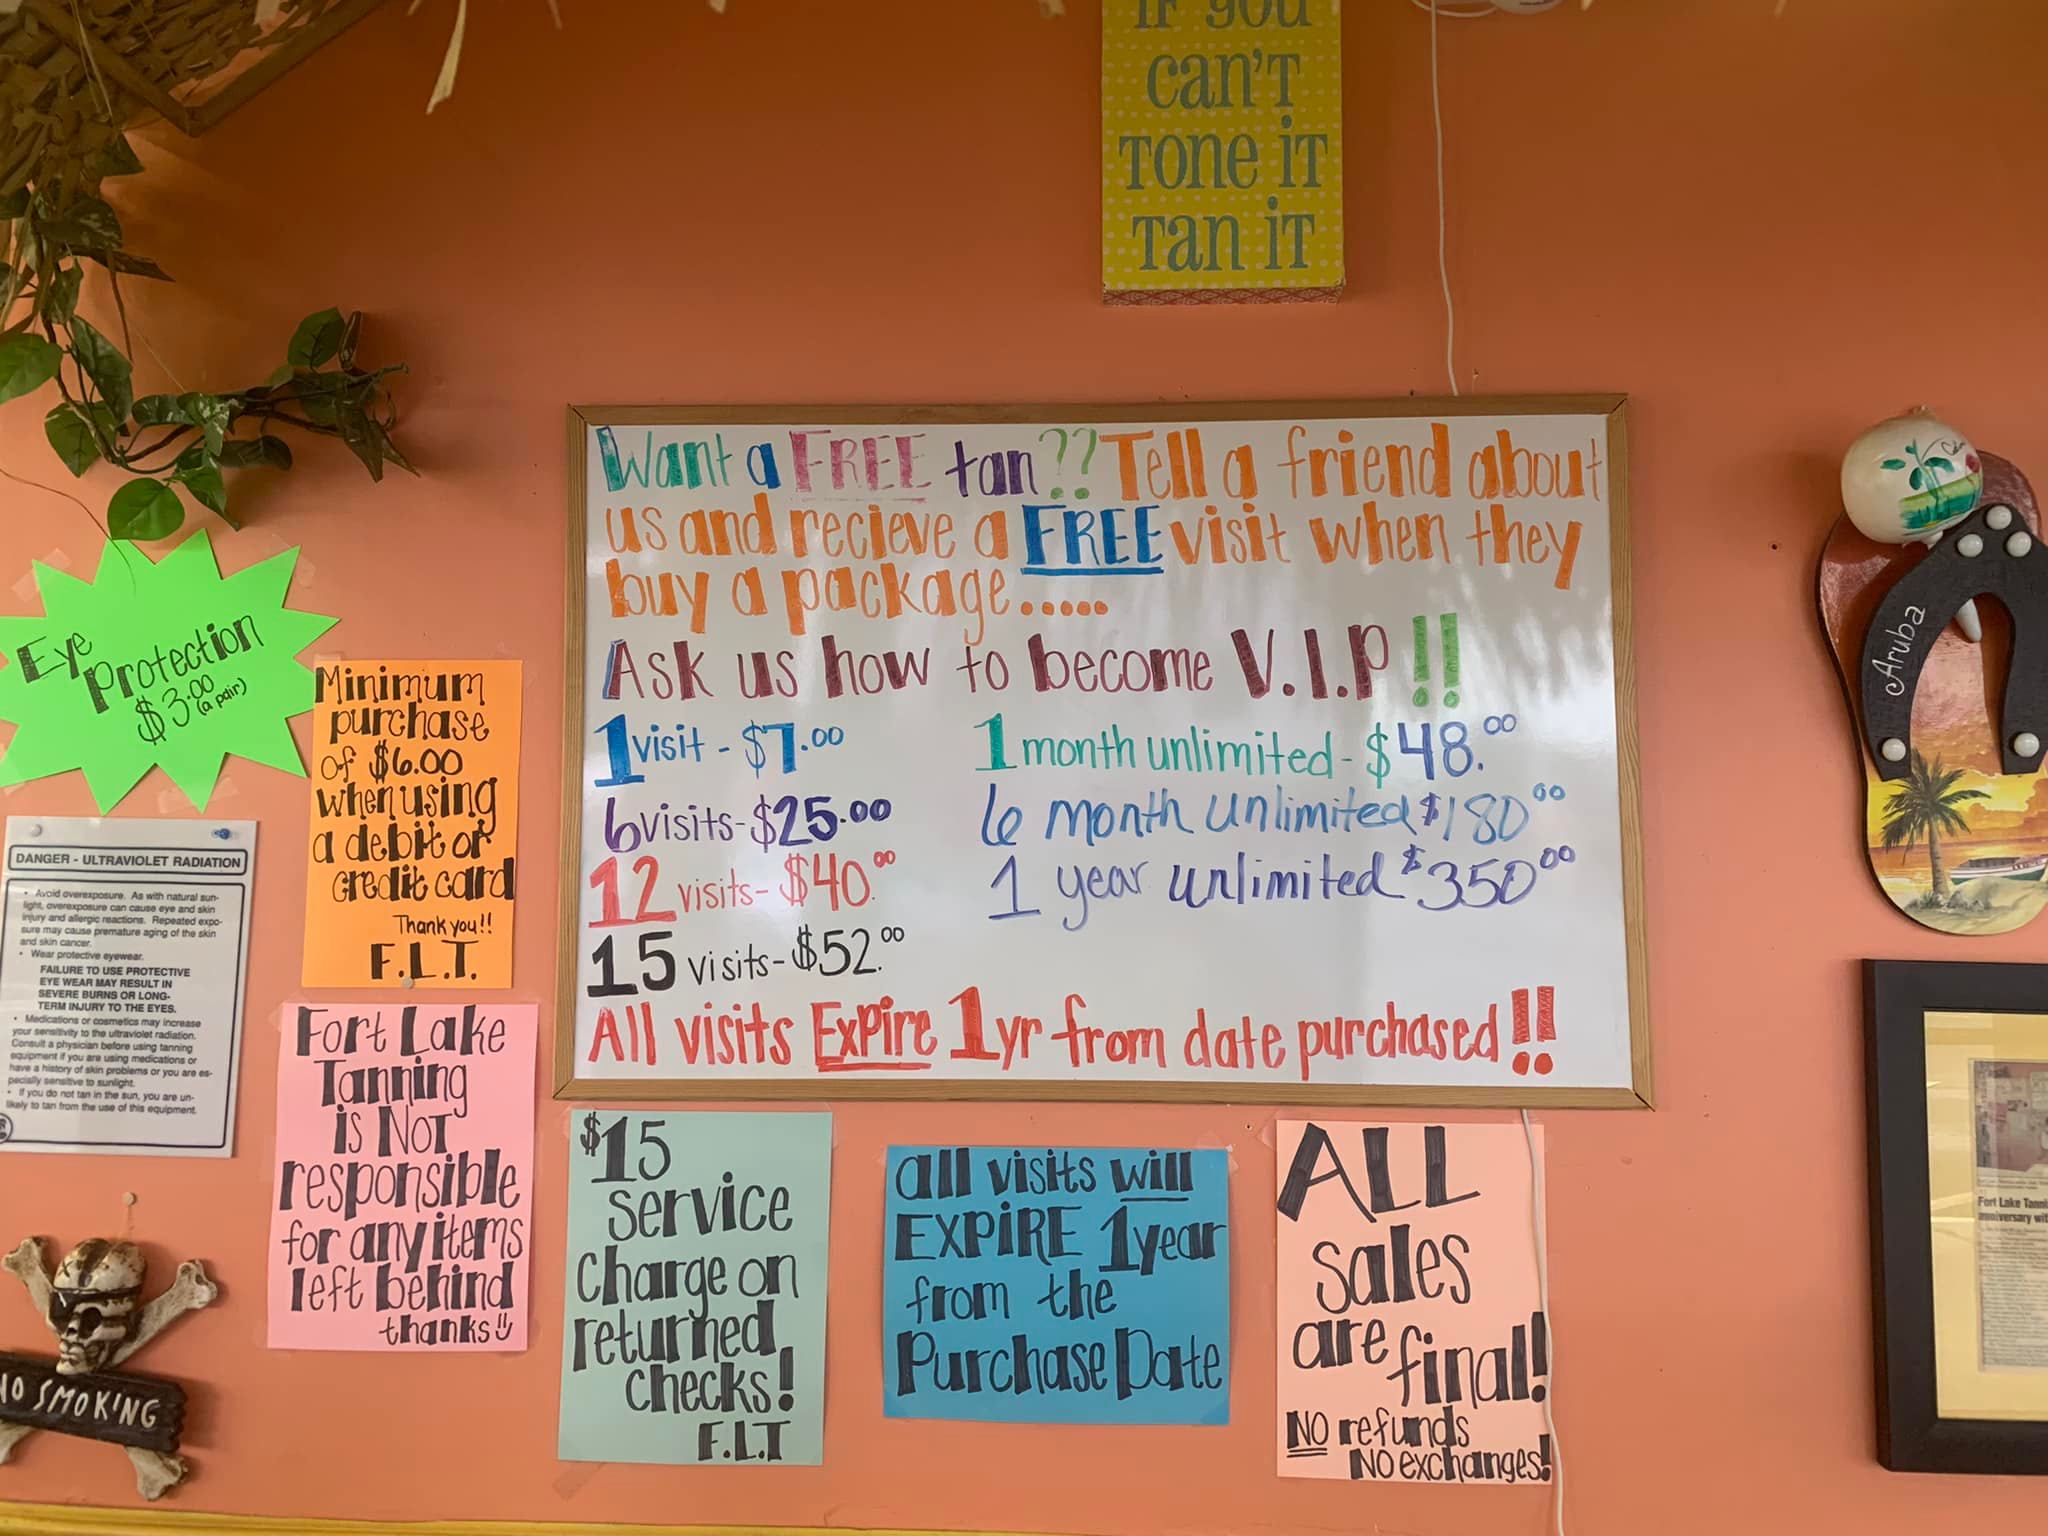 IF you
can't
Tone iT
Tan iT
Want a FREE tan?? Tell a friend about
us and recieve a FREE visit when they
buy a package.....
Ask us how to become V.I.P!!
1 visit - $7.00
6 visits - $25.00
12 visits - $40.00
15 visits - $52.00
1 month unlimited - $48.00
6 month unlimited $180.00
1 year unlimited $350.00
All visits Expire 1yr from date purchased!!
Eye
Protection
$3.00
(a pair)
Minimum
purchase
of $6.00
when using
a debit or
credit card
Thank you!!
F.L.T.
DANGER - ULTRAVIOLET RADIATION
• Avoid overexposure. As with natural sun-
light, overexposure can cause eye and skin
injury and allergic reactions. Repeated expo-
sure may cause premature aging of the skin
and skin cancer.
• Wear protective eyewear.
FAILURE TO USE PROTECTIVE
EYE WEAR MAY RESULT IN
SEVERE BURNS OR LONG-
TERM INJURY TO THE EYES.
• Medications or cosmetics may increase
your sensitivity to the ultraviolet radiation.
Consult a physician before using tanning
equipment if you are using medications or
have a history of skin problems or you are es-
pecially sensitive to sunlight.
• If you do not tan in the sun, you are un-
likely to tan from the use of this equipment.
Fort Lake
Tanning
is NOT
responsible
for any items
left behind
thanks
$15
Service
charge on
returned
checks!
F.L.T
all visits will
EXPIRE 1 year
from the
Purchase Date
ALL
sales
are
final!
NO refunds
NO exchanges!
NO SMOKING
Aruba
Fort Lake Tanni
anniversary wit